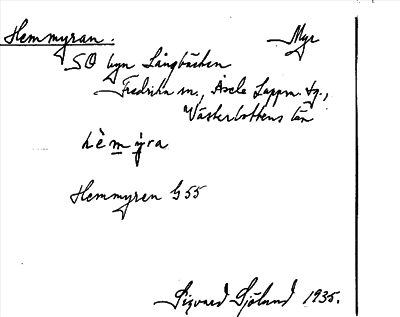 Hemmyran. Myr
SO byn Långbäcken
Fredrika sn., Åsele Lappm. tg.,
Västerbottens län
hèmýra
Hemmyren G55
Sigvard Sjölund 1935.